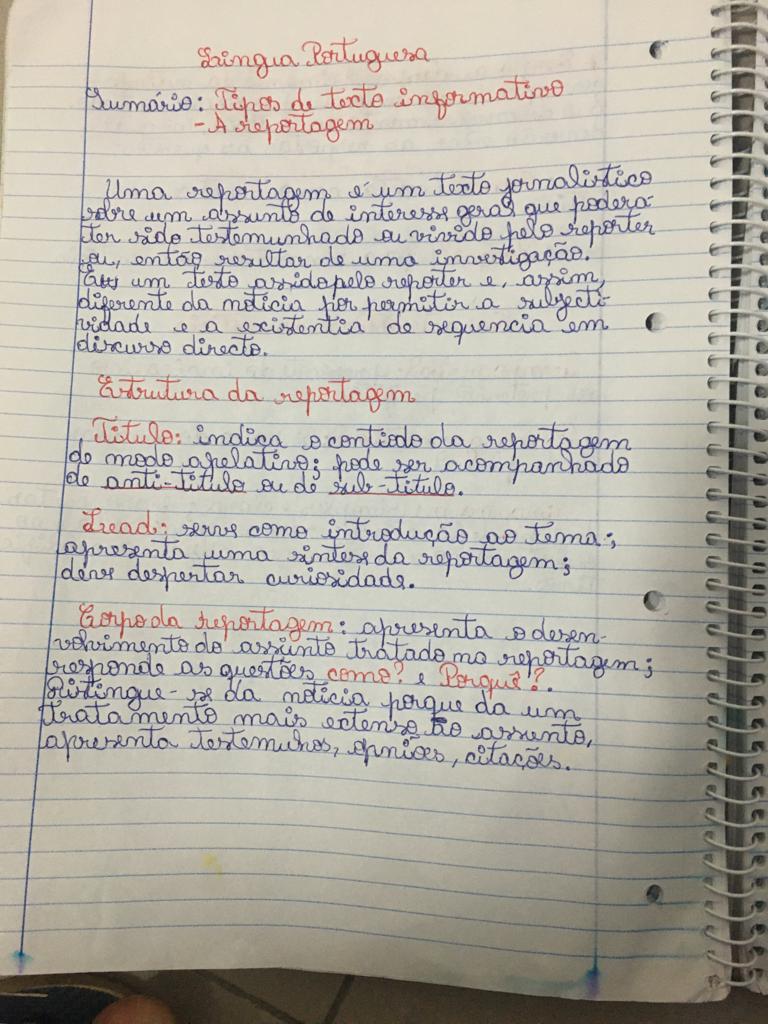 Lingua Portuguesa
Sumário: Tipos de texto informativo
- A reportagem
Uma reportagem é um texto jornalistico
sobre um assunto de interesse geral que podera
ter sido testemunhado ou vivido pelo reporter
ou, então resultar de uma investigação.
um texto assido pelo reporter e, assim,
diferente da noticia por permitir a subjecti-
vidade e a existentia de sequencia em
discurso directo.
Estrutura da reportagem
Titulo: indica o contiodo da reportagem
de modo apelativo; pode ser acompanhado
de anti-titulo ou de sub-titulo.
Lead: serve como introdução ao tema;
apresenta uma sintese da reportagem;
deve despertar curiosidade.
Corpo da reportagem: apresenta o desen-
volvimento do assunto tratado na reportagem;
responde as questões como? e Porquê?.
Distingue-se da noticia porque da um
tratamento mais extenso ao assunto,
apresenta testemunhos, opniões, citações.